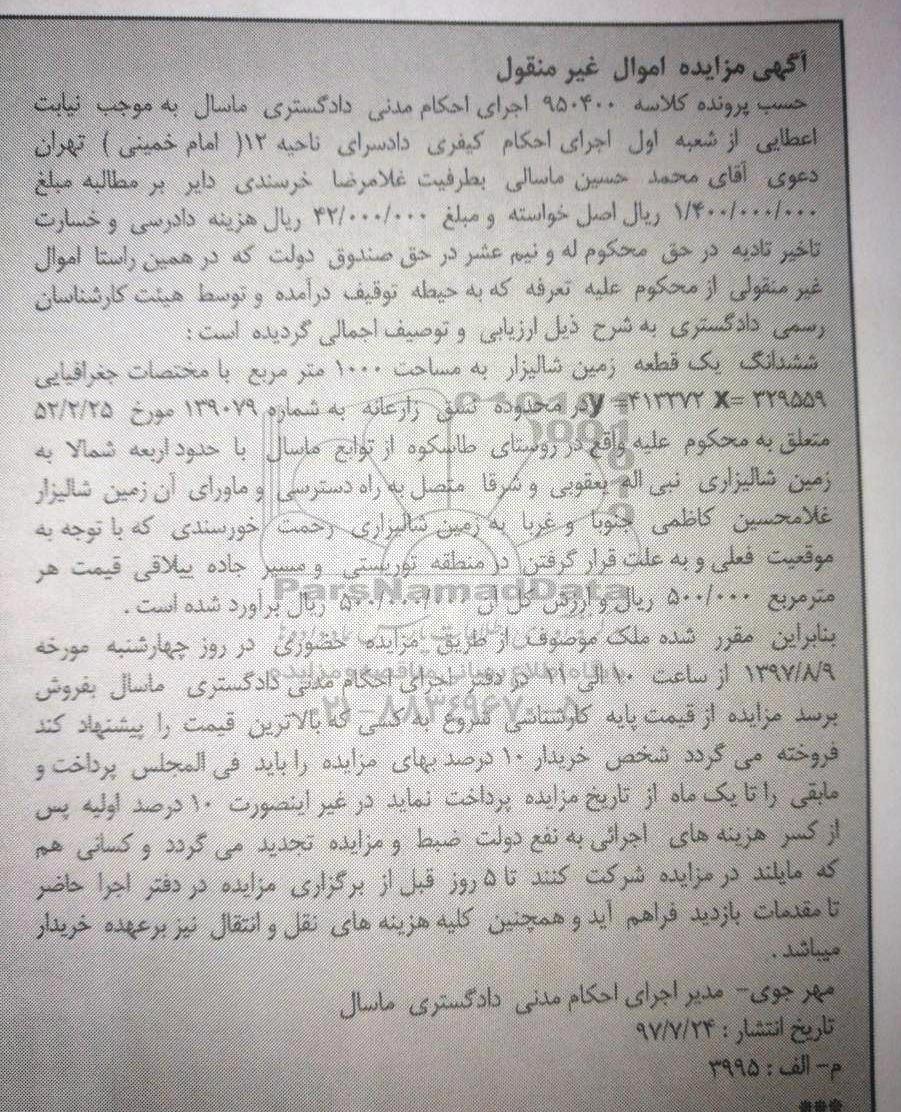 آگهی مزایده اموال غیر منقول
حسب پرونده کلاسه ۹۵۰۴۰۰ اجرای احکام مدنی دادگستری ماسال به موجب نیابت
اعطایی از شعبه اول اجرای احکام کیفری دادسرای ناحیه ۱۲( امام خمینی ) تهران
دعوی آقای محمد حسین ماسالی بطرفیت غلامرضا خرسندی دایر بر مطالبه مبلغ
۱/۴۰۰/۰۰۰/۰۰۰ ریال اصل خواسته و مبلغ ۴۲/۰۰۰/۰۰۰ ریال هزینه دادرسی و خسارت
تاخیر تادیه در حق محکوم له و نیم عشر در حق صندوق دولت که در همین راستا اموال
غیر منقولی از محکوم علیه تعرفه که به حیطه توقیف درآمده و توسط هیئت کارشناسان
رسمی دادگستری به شرح ذیل ارزیابی و توصیف اجمالی گردیده است :
ششدانگ یک قطعه زمین شالیزار به مساحت ۱۰۰۰ متر مربع با مختصات جغرافیایی
x= ۳۲۹۵۵۹ y =۴۱۳۳۷۲ در محدوده نسق زارعانه به شماره ۱۳۹۰۷۹ مورخ ۵۲/۲/۲۵
متعلق به محکوم علیه واقع در روستای طاسکوه از توابع ماسال با حدود اربعه شمالا به
زمین شالیزاری نبی اله یعقوبی و شرقا متصل به راه دسترسی و ماورای آن زمین شالیزار
غلامحسین کاظمی جنوبا و غربا به زمین شالیزاری رحمت خورسندی که با توجه به
موقعیت فعلی و به علت قرار گرفتن در منطقه توریستی و مسیر جاده ییلاقی قیمت هر
مترمربع ۵۰۰/۰۰۰ ریال و ارزش کل آن ۵۰۰/۰۰۰/۰۰۰ ریال برآورد شده است .
بنابراین مقرر شده ملک موصوف از طریق مزایده حضوری در روز چهارشنبه مورخه
۱۳۹۷/۸/۹ از ساعت ۱۰ الی ۱۱ در دفتر اجرای احکام مدنی دادگستری ماسال بفروش
برسد مزایده از قیمت پایه کارشناسی شروع به کسی که بالاترین قیمت را پیشنهاد کند
فروخته می گردد شخص خریدار ۱۰ درصد بهای مزایده را باید فی المجلس پرداخت و
مابقی را تا یک ماه از تاریخ مزایده پرداخت نماید در غیر اینصورت ۱۰ درصد اولیه پس
از کسر هزینه های اجرائی به نفع دولت ضبط و مزایده تجدید می گردد و کسانی هم
که مایلند در مزایده شرکت کنند تا ۵ روز قبل از برگزاری مزایده در دفتر اجرا حاضر
تا مقدمات بازدید فراهم آید و همچنین کلیه هزینه های نقل و انتقال نیز برعهده خریدار
میباشد .
مهر جوی- مدیر اجرای احکام مدنی دادگستری ماسال
تاریخ انتشار : ۹۷/۷/۲۴
م- الف : ۳۹۹۵
***
ParsNamadData
۰۲۱-۸۸۳۴۹۶۷۰-۵